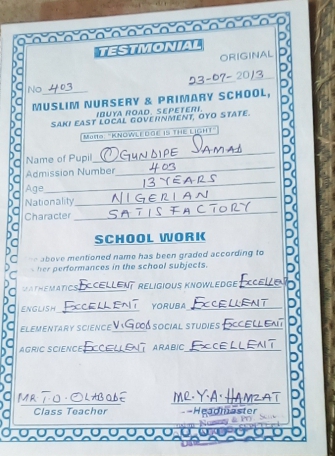 TESTMONIAL
ORIGINAL
No 403 23-07-2013
MUSLIM NURSERY & PRIMARY SCHOOL,
IBUYA ROAD, SEPETERI,
SAKI EAST LOCAL GOVERNMENT, OYO STATE.
Motto: "KNOWLEDGE IS THE LIGHT"
Name of Pupil OGUNDIPE SAMAD
Admission Number 403
Age 13 YEARS
Nationality NIGERIAN
Character SATISFACTORY
SCHOOL WORK
above mentioned name has been graded according to
her performances in the school subjects.
MATHEMATICS EXCELLENT RELIGIOUS KNOWLEDGE EXCELLENT
ENGLISH EXCELLENT YORUBA EXCELLENT
ELEMENTARY SCIENCE V.GOOD SOCIAL STUDIES EXCELLENT
AGRIC SCIENCE EXCELLENT ARABIC EXCELLENT
MR T.O. OLABODE MR. Y.A. HAMZAT
Class Teacher Headmaster